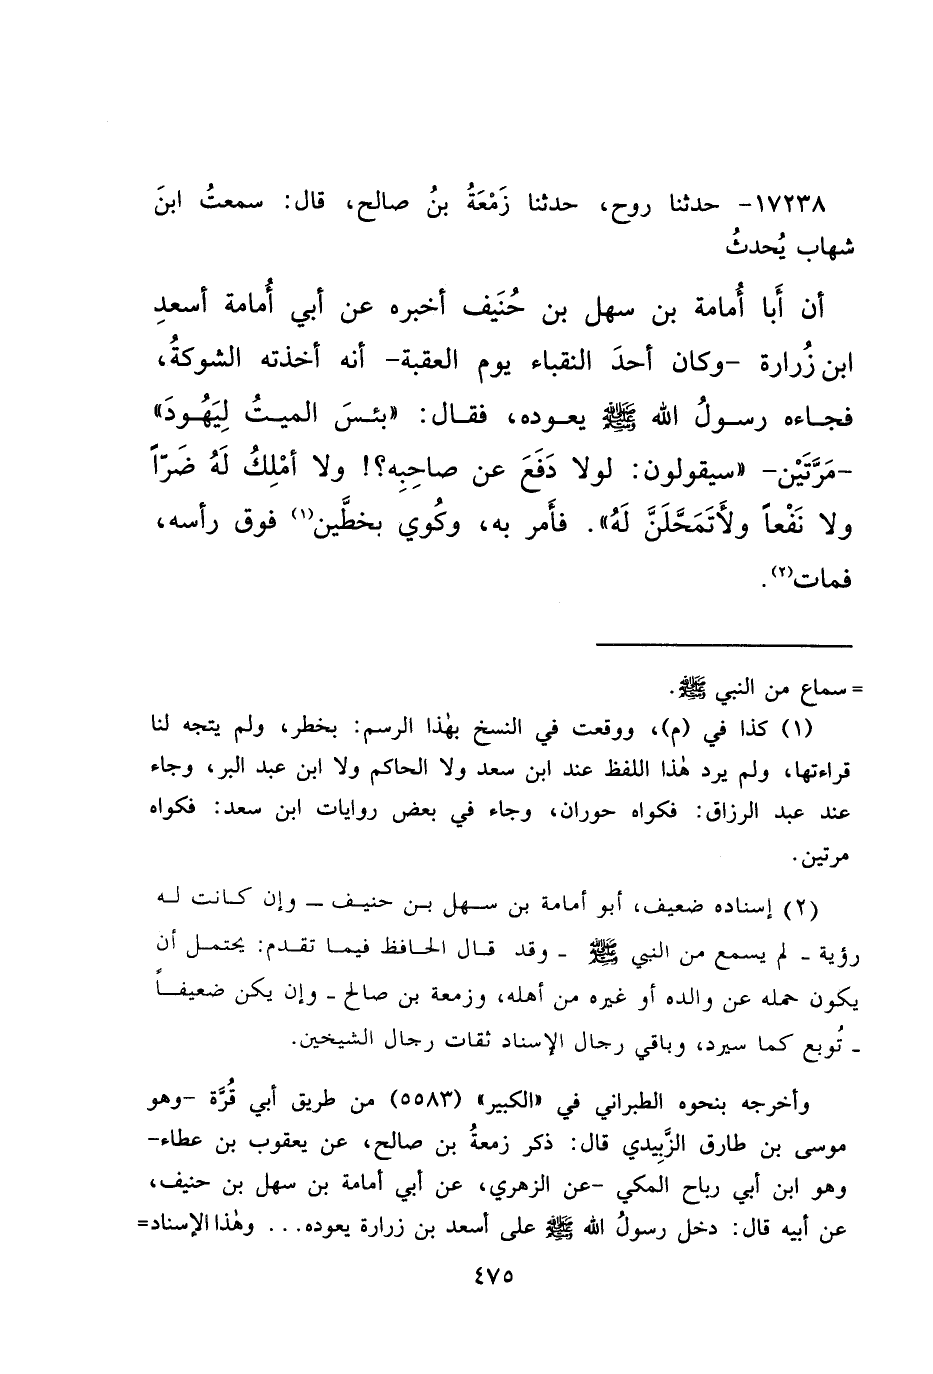 ١٧٢٣٨- حدثنا روح، حدثنا زَمْعَةُ بنُ صالح، قال: سمعتُ ابنَ
شهاب يُحدثُ
أن أَبا أُمامة بن سهل بن حُنَيف أخبره عن أبي أُمامة أسعدِ
ابن زُرارة -وكان أحدَ النقباء يوم العقبة- أنه أخذته الشوكةُ،
فجاءه رسولُ الله ﷺ يعوده، فقال: «بئسَ الميتُ لِيَهُودَ»
-مَرَّتَيْن- «سيقولون: لولا دَفَعَ عن صاحِبِه؟! ولا أمْلِكُ لَهُ ضَرّاً
ولا نَفْعاً ولأَتَمَحَّلَنَّ لَهُ». فأَمر به، وكُوي بخطَّين(١) فوق رأسه،
فمات(٢).
= سماع من النبي ﷺ.
(١) كذا في (م)، ووقعت في النسخ بهٰذا الرسم: بخطر، ولم يتجه لنا
قراءتها، ولم يرد هٰذا اللفظ عند ابن سعد ولا الحاكم ولا ابن عبد البر، وجاء
عند عبد الرزاق: فكواه حوران، وجاء في بعض روايات ابن سعد: فكواه
مرتين.
(٢) إسناده ضعيف، أبو أمامة بن سهل بن حنيف ـ وإن كانت له
رؤية ـ لم يسمع من النبي ﷺ ـ وقد قال الحافظ فيما تقدم: يحتمل أن
يكون حمله عن والده أو غيره من أهله، وزمعة بن صالح ـ وإن يكن ضعيفاً
ـ تُوبع كما سيرد، وباقي رجال الإسناد ثقات رجال الشيخين.
وأخرجه بنحوه الطبراني في «الكبير» (٥٥٨٣) من طريق أبي قُرَّة -وهو
موسى بن طارق الزَّبِيدي قال: ذكر زمعةُ بن صالح، عن يعقوب بن عطاء-
وهو ابن أبي رباح المكي -عن الزهري، عن أبي أمامة بن سهل بن حنيف،
عن أبيه قال: دخل رسولُ الله ﷺ على أسعد بن زرارة يعوده... وهٰذا الإسناد=
٤٧٥